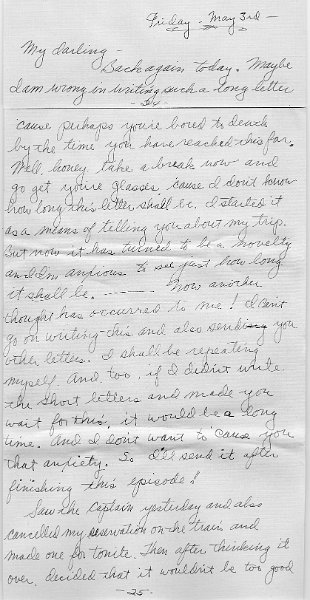 Friday - May 3rd -
My darling -
Back again today. Maybe
I am wrong in writing such a long letter
- 24 -
'cause perhaps you're bored to death
by the time you have reached this far.
Well honey take a break now and
go get youre glasses, 'cause I dont know
how long this letter shall be. I started it
as a means of telling you about my trip.
But now it has turned to be a novelty
and I'm anxious to see just how long
it shall be. ------ Now another
thought has occurred to me! I can't
go on writing this and also sending you
other letters. I shall be repeating
myself. And too, if I didn't write
the short letters and made you
wait for this, it would be a long
time. And I dont want to 'cause you
that anxiety. So I'll send it after
finishing this episode!
Saw the Captain yesterday and also
cancelled my reservation on the train and
made one for tonite. Then after thinking it
over, decided that it wouldn't be too good
- 25 -